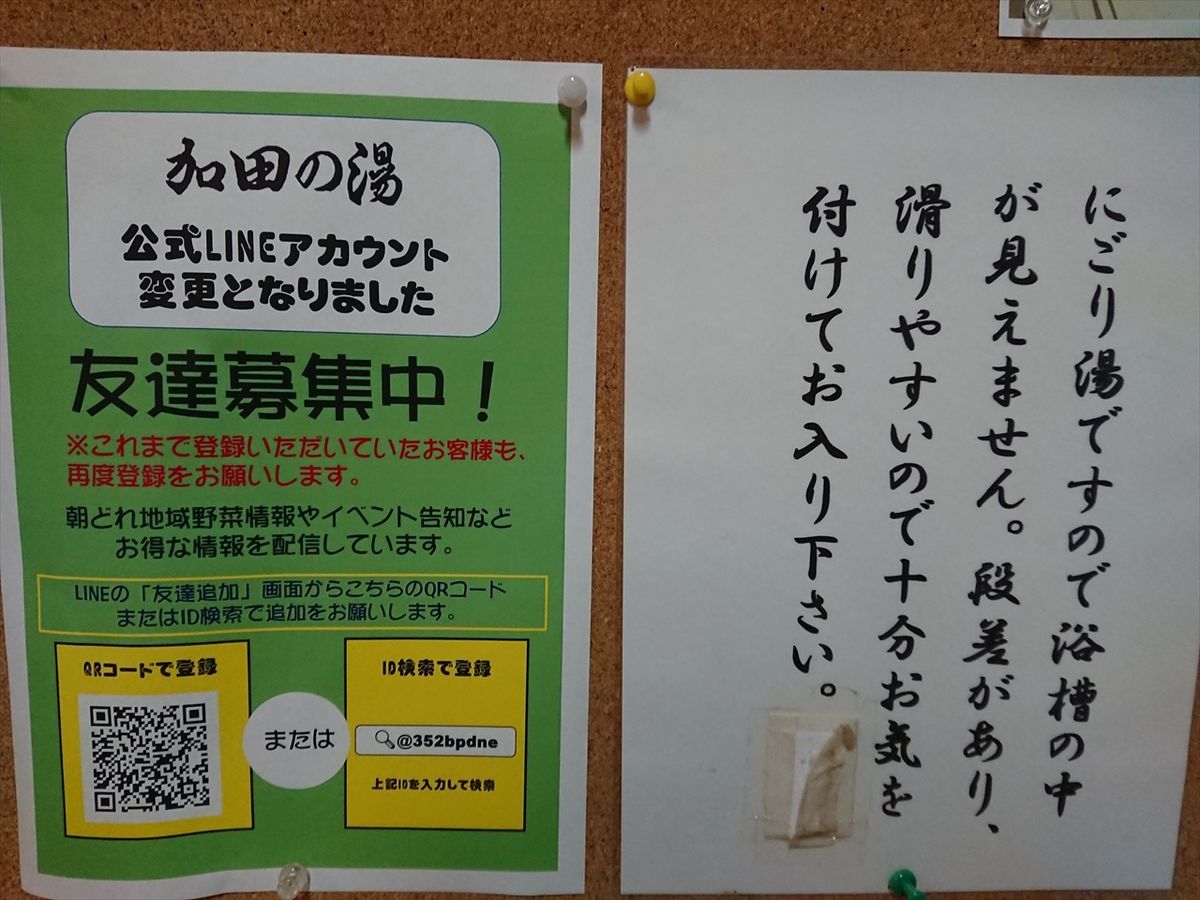 加田の湯
公式LINEアカウント
変更となりました
友達募集中！
※これまで登録いただいていたお客様も、
再度登録をお願いします。
朝どれ地域野菜情報やイベント告知など
お得な情報を配信しています。
LINEの「友達追加」画面からこちらのQRコード
またはID検索で追加をお願いします。
QRコードで登録
または
ID検索で登録
@352bpdne
上記IDを入力して検索
にごり湯ですので浴槽の中
が見えません。段差があり、
滑りやすいので十分お気を
付けてお入り下さい。